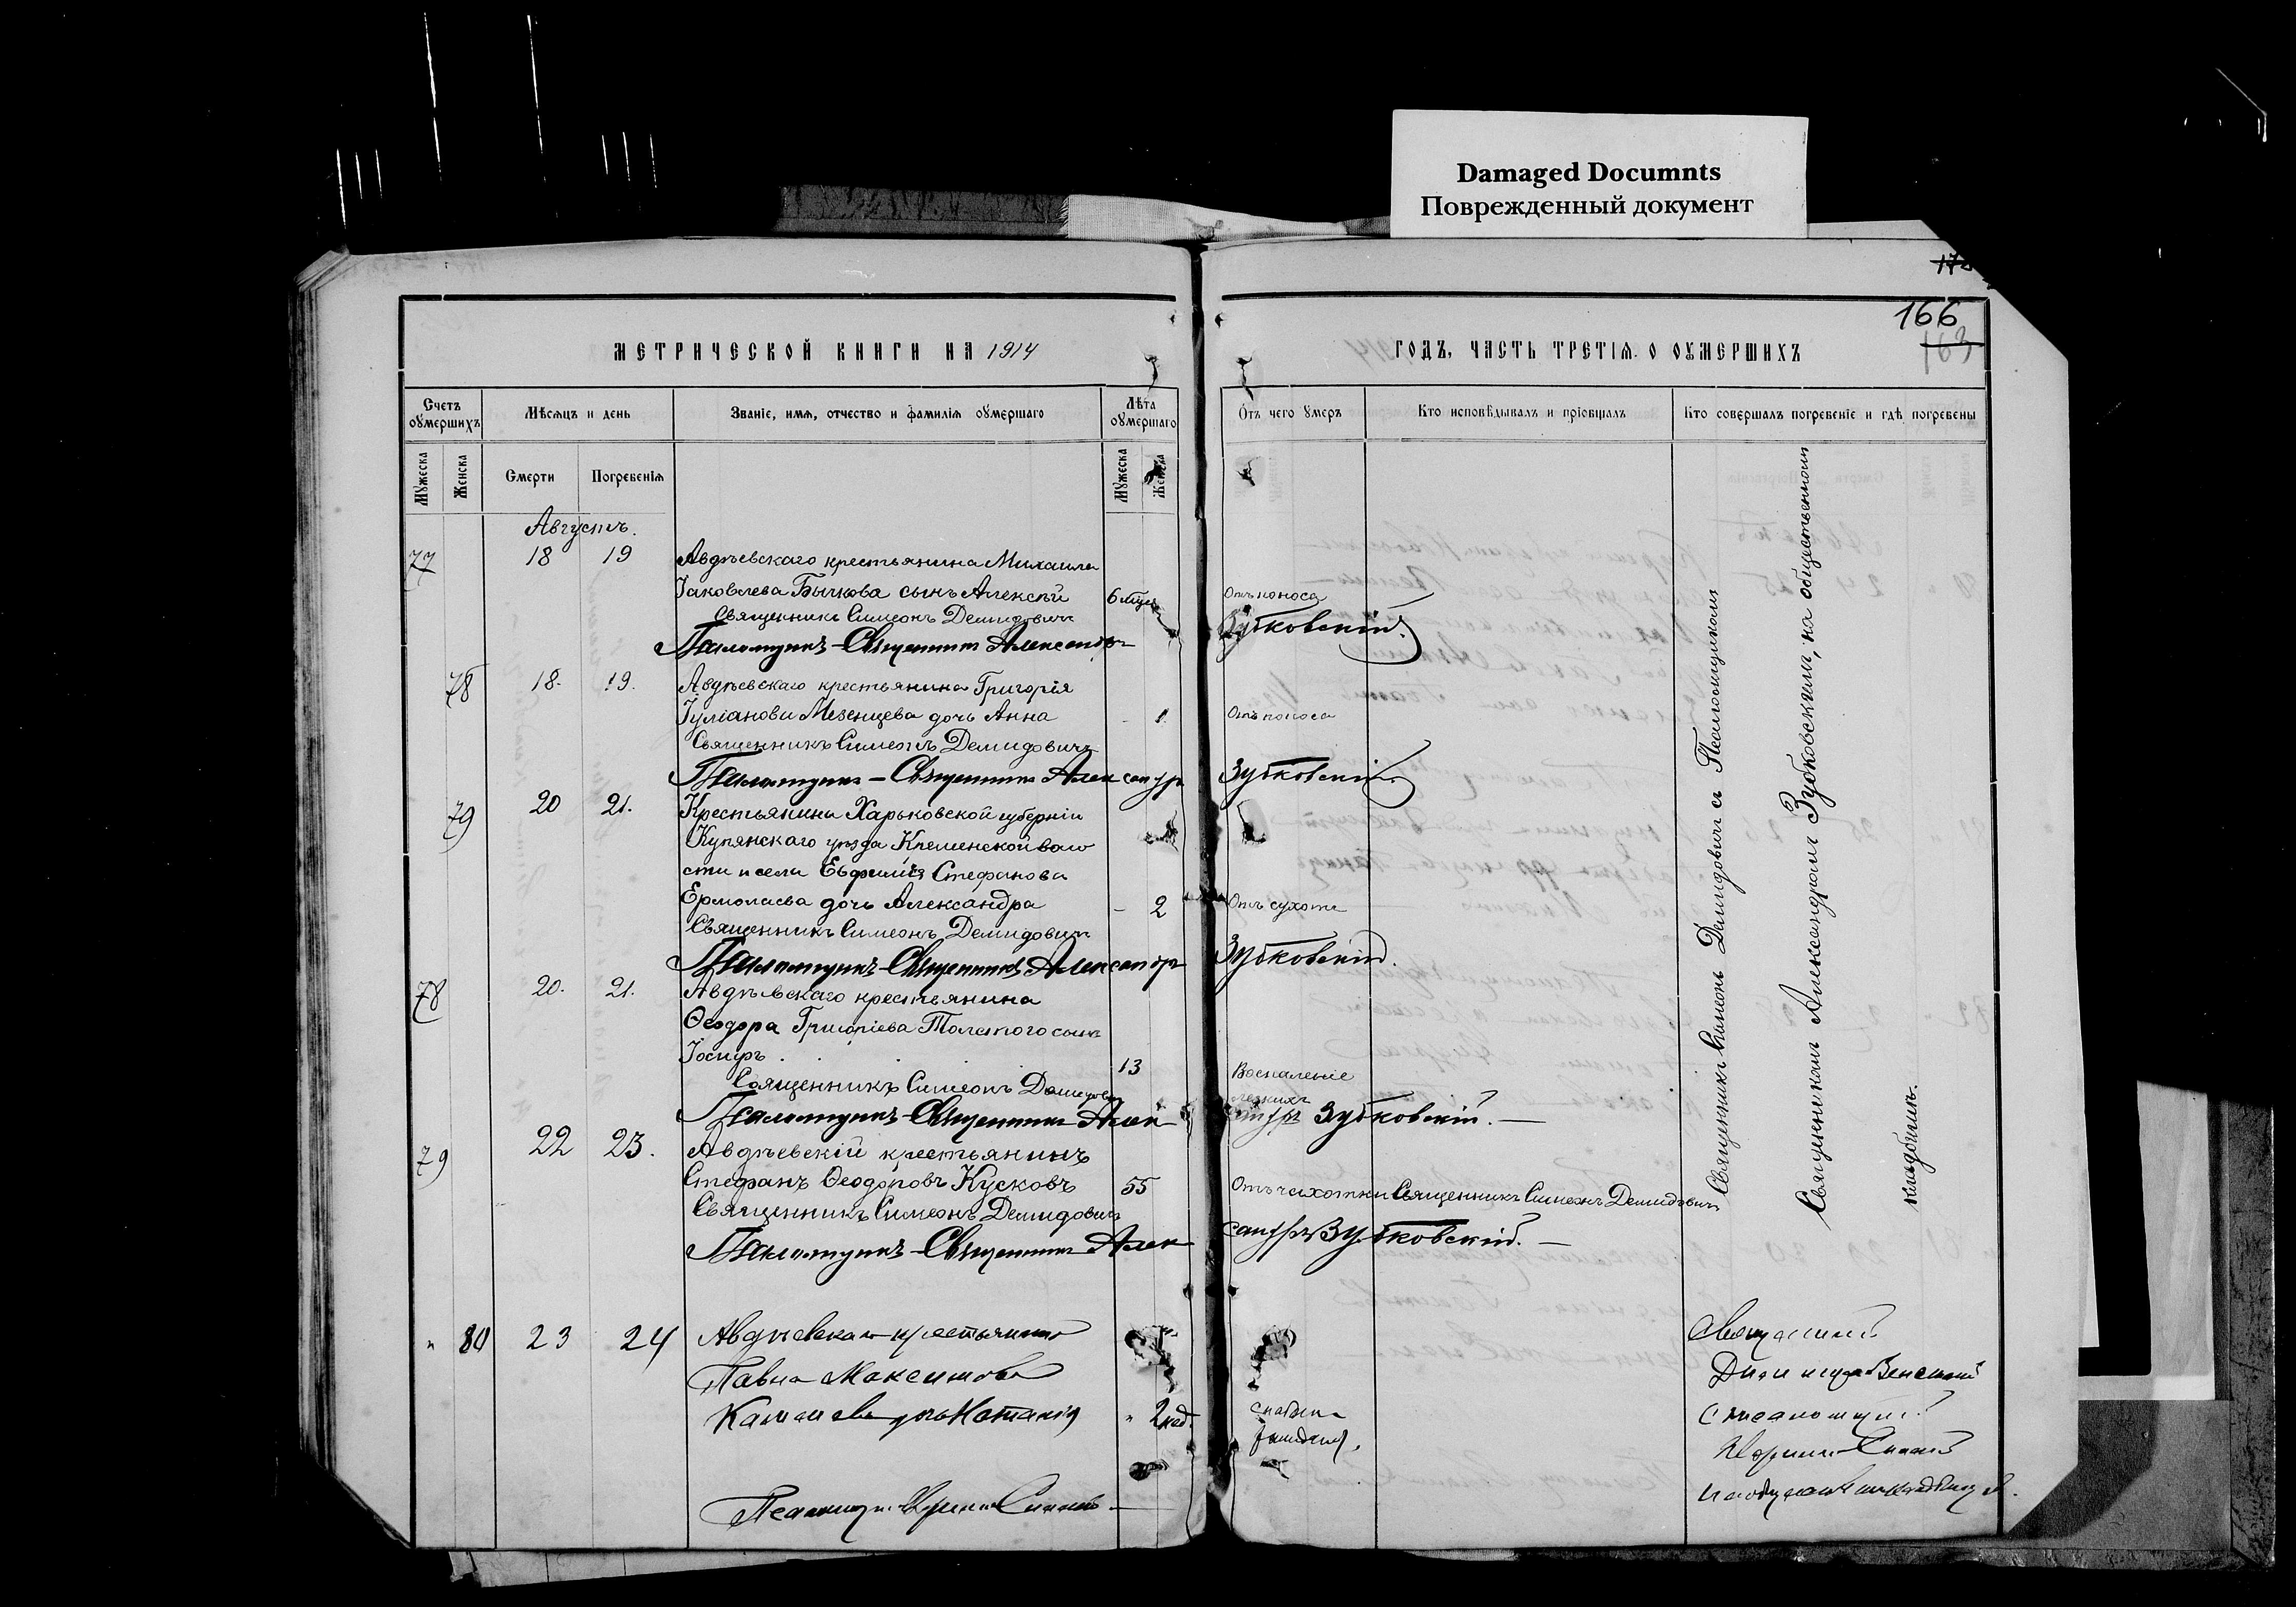 Damaged Documnts
Поврежденный документ
166
163
МЕТРИЧЕСКОЙ КНИГИ НА 1914
ГОДЪ, ЧАСТЬ ТРЕТІЯ. О ОУМЕРШИХЪ
Счетъ оумершихъ
Мѣсяцъ и день
Званіе, имя, отчество и фамилія оумершаго
Лѣта оумершаго
Отъ чего умеръ
Кто исповѣдывалъ и пріобщалъ
Кто совершалъ погребеніе и гдѣ погребены
Мужеска
Женска
Смерти
Погребенія
Мужеска
Женска
Августъ.
77 18 19 Авдѣевскаго крестьянина Михаила
Іаковлева Бычкова сынъ Алексѣй 6 мцев Отъ поноса
Священникъ Симеонъ Демидовичъ
Псаломщикъ-Священникъ Александръ Зубковскій.
78 18. 19. Авдѣевскаго крестьянина Григорія
Іуліанова Мезенцева дочь Анна - 1 Отъ поноса
Священникъ Симеонъ Демидовичъ
Псаломщикъ-Священникъ Александръ Зубковскій.
79 20 21. Крестьянина Харьковской губерніи
Купянскаго уѣзда Кременской воло
сти и села Евфимія Стефанова
Ермолаева дочь Александра - 2 Отъ сухоты
Священникъ Симеонъ Демидовичъ
Псаломщикъ-Священникъ Александръ Зубковскій.
78 20. 21. Авдѣевскаго крестьянина
Ѳеодора Григоріева Толстого сынъ
Іосифъ 13 Воспаленіе
легкихъ
Священникъ Симеонъ Демидович
Псаломщикъ-Священникъ Александръ Зубковскій.
79 22 23. Авдѣевскій крестьянинъ
Стефанъ Ѳеодоровъ Кусковъ 55 Отъ чахотки Священникъ Симеонъ Демидович
Священникъ Симеонъ Демидович
Псаломщикъ-Священникъ Александръ Зубковскій.
Священникъ Симеонъ Демидовичъ съ Псаломщикомъ
Священникомъ Александромъ Зубковскимъ, на общественномъ
кладбищѣ.
" 80 23 24 Авдѣевскаго крестьянина
Павла Максимова
дочь Наталія " 2 нед.
Священникъ